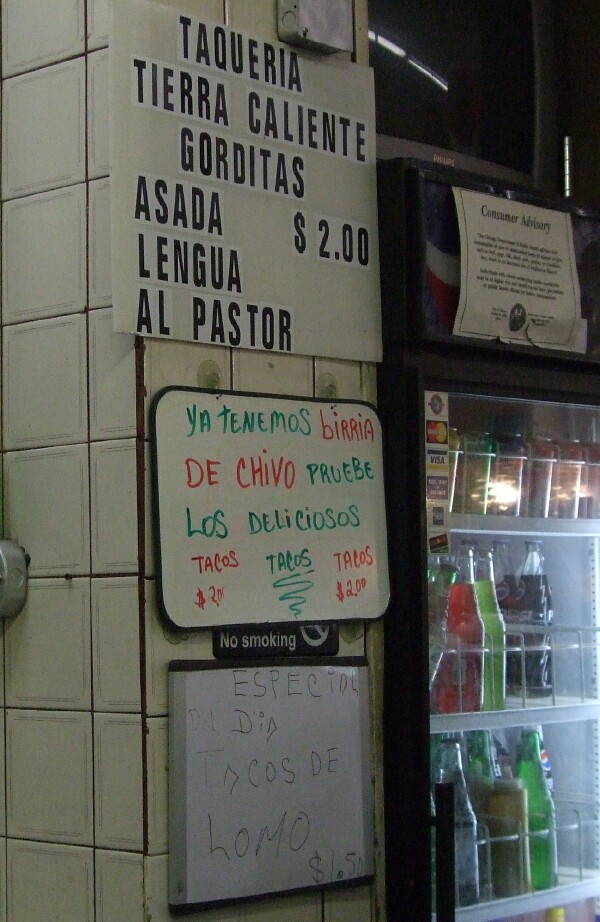 TAQUERIA
TIERRA CALIENTE
GORDITAS
ASADA $2.00
LENGUA
AL PASTOR
YA TENEMOS BIRRIA
DE CHIVO PRUEBE
LOS DELICIOSOS
TACOS TACOS TACOS
$2.00 $2.00
No smoking
ESPECIAL
DEL DIA
TACOS DE
LOMO
$1.50
PHILIPS
Consumer Advisory
MasterCard
VISA